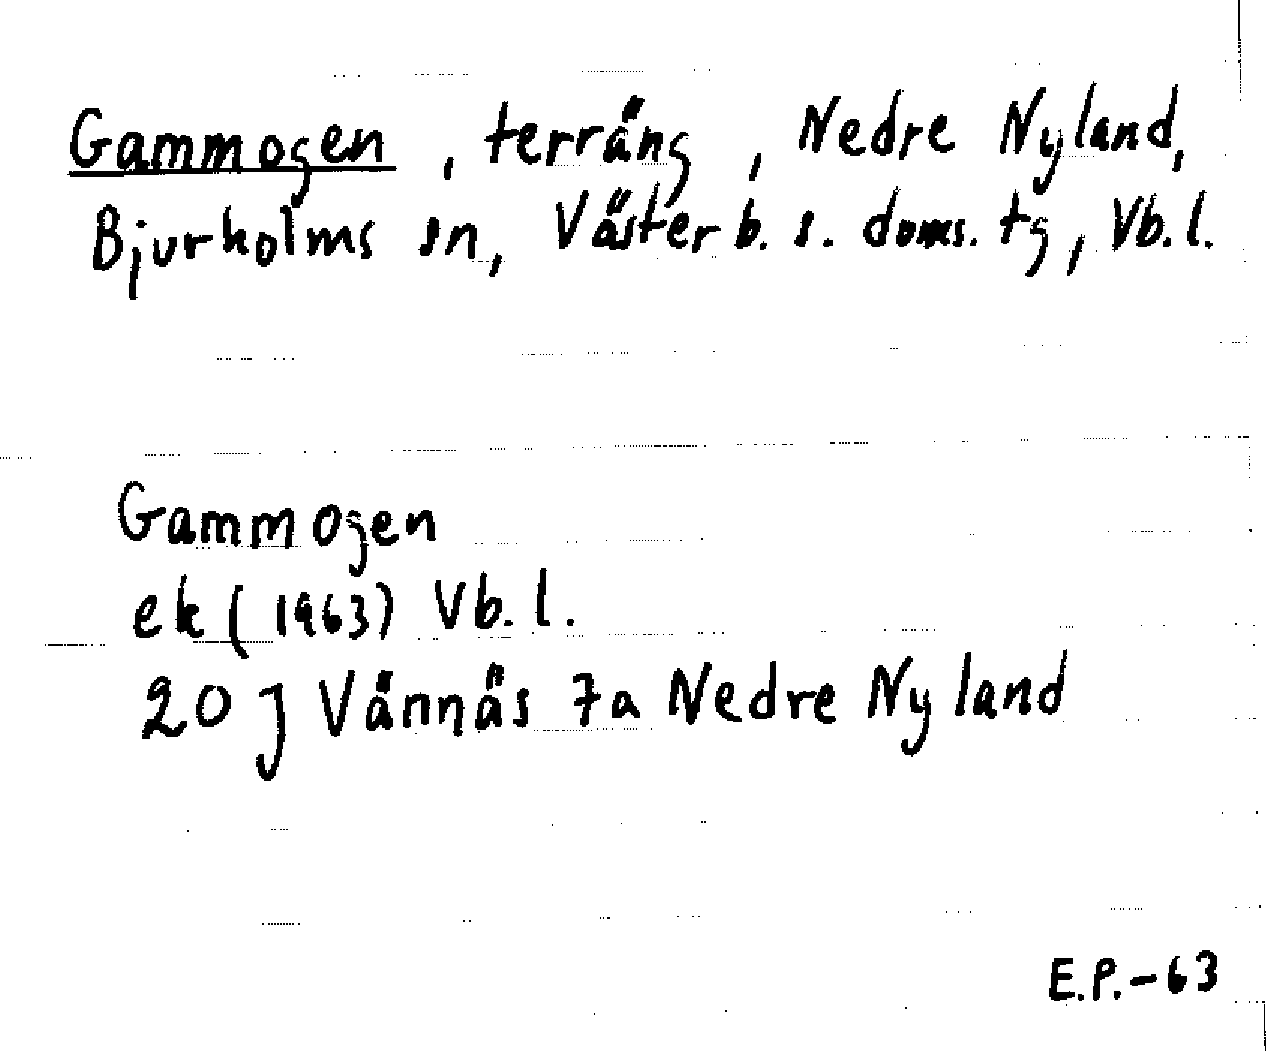 Gammogen, terräng, Nedre Nyland,
Bjurholms sn, Västerb. s. doms. tg, Vb. l.
Gammogen
ek (1963) Vb. l.
20 J Vännäs 7a Nedre Nyland
E.P.-63